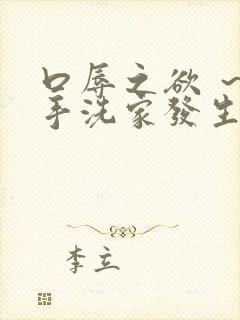 口辱之欲 ~
手洗家發生
李立